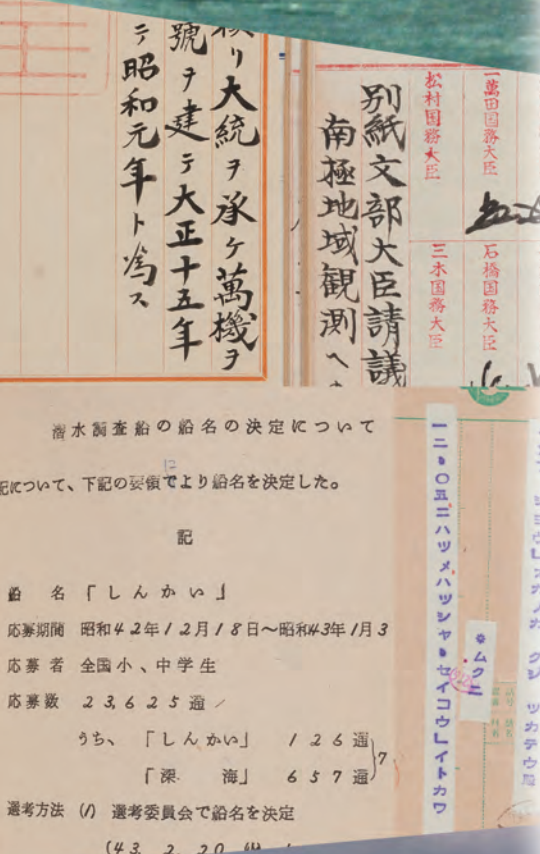 大統ヲ承ケ萬機ヲ
號ヲ建テ大正十五年
テ昭和元年ト為ス
一萬田国務大臣
石橋国務大臣
松村国務大臣
三木国務大臣
別紙文部大臣請議
南極地域観測ヘ
潜水調査船の船名の決定について
記について、下記の要領により船名を決定した。
記
船 名 「しんかい」
応募期間 昭和42年12月18日~昭和43年1月3
応募者 全国小、中学生
応募数 23,625通
うち、 「しんかい」 126通
「深 海」 657通
選考方法 (1) 選考委員会で船名を決定
(43. 2. 20
ムクニ
一二●〇五ニハツメハツシヤ●セイコウ」イトカワ